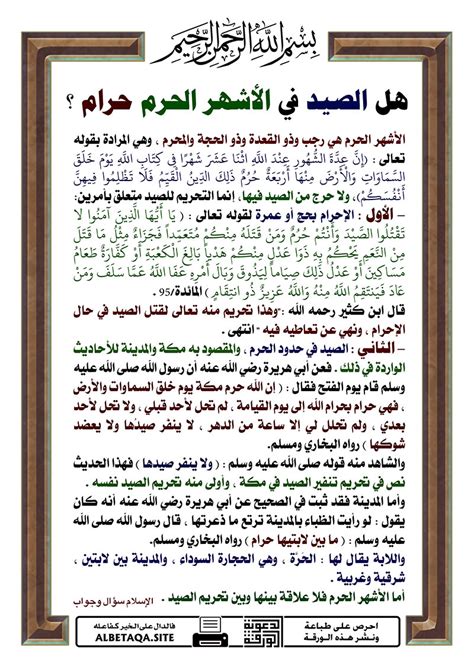 بِسْمِ اللَّهِ الرَّحْمَنِ الرَّحِيمِ
هل الصيد في الأشهر الحرم حرام ؟
الأشهر الحرم هي رجب وذو القعدة وذو الحجة والمحرم ، وهي المرادة بقوله
تعالى : ( إِنَّ عِدَّةَ الشُّهُورِ عِنْدَ اللَّهِ اثْنَا عَشَرَ شَهْرًا فِي كِتَابِ اللَّهِ يَوْمَ خَلَقَ
السَّمَاوَاتِ وَالْأَرْضَ مِنْهَا أَرْبَعَةٌ حُرُمٌ ذَلِكَ الدِّينُ الْقَيِّمُ فَلَا تَظْلِمُوا فِيهِنَّ
أَنْفُسَكُمْ)، ولا حرج من الصيد فيها، إنما التحريم للصيد متعلق بأمرين:
- الأول : الإحرام بحج أو عمرة لقوله تعالى : ( يَا أَيُّهَا الَّذِينَ آمَنُوا لا
تَقْتُلُوا الصَّيْدَ وَأَنْتُمْ حُرُمٌ وَمَنْ قَتَلَهُ مِنْكُمْ مُتَعَمِّداً فَجَزَاءٌ مِثْلُ مَا قَتَلَ
مِنَ النَّعَمِ يَحْكُمُ بِهِ ذَوَا عَدْلٍ مِنْكُمْ هَدْياً بَالِغَ الْكَعْبَةِ أَوْ كَفَّارَةٌ طَعَامُ
مَسَاكِينَ أَوْ عَدْلُ ذَلِكَ صِيَاماً لِيَذُوقَ وَبَالَ أَمْرِهِ عَفَا اللَّهُ عَمَّا سَلَفَ وَمَنْ
عَادَ فَيَنْتَقِمُ اللَّهُ مِنْهُ وَاللَّهُ عَزِيزٌ ذُو انْتِقَامٍ ) المائدة/95 .
قال ابن كثير رحمه الله :-وهذا تحريم منه تعالى لقتل الصيد في حال
الإحرام ، ونهي عن تعاطيه فيه - انتهى .
- الثاني : الصيد في حدود الحرم ، والمقصود به مكة والمدينة للأحاديث
الواردة في ذلك . فعن أبي هريرة رضي الله عنه أن رسول الله صلى الله عليه
وسلم قام يوم الفتح فقال : ( إن الله حرم مكة يوم خلق السماوات والأرض
، فهي حرام بحرام الله إلى يوم القيامة ، لم تحل لأحد قبلي ، ولا تحل لأحد
بعدي ، ولم تحلل لي إلا ساعة من الدهر ، لا ينفر صيدها ولا يعضد
شوكها ) رواه البخاري ومسلم.
والشاهد منه قوله صلى الله عليه وسلم : ( ولا ينفر صيدها ) فهذا الحديث
نص في تحريم تنفير الصيد في مكة ، وأولى منه تحريم الصيد نفسه .
وأما المدينة فقد ثبت في الصحيح عن أبي هريرة رضي الله عنه أنه كان
يقول : لو رأيت الظباء بالمدينة ترتع ما ذعرتها ، قال رسول الله صلى الله
عليه وسلم : ( ما بين لابتيها حرام ) رواه البخاري ومسلم .
واللابة يقال لها : الحَرَّة ، وهي الحجارة السوداء ، والمدينة بين لابتين ،
شرقية وغربية .
أما الأشهر الحرم فلا علاقة بينها وبين تحريم الصيد . الإسلام سؤال وجواب
احرص على طباعة
ونشر هذه الورقة
الدعوية
الورقية
فالدال على الخير كفاعله
ALBETAQA.SITE